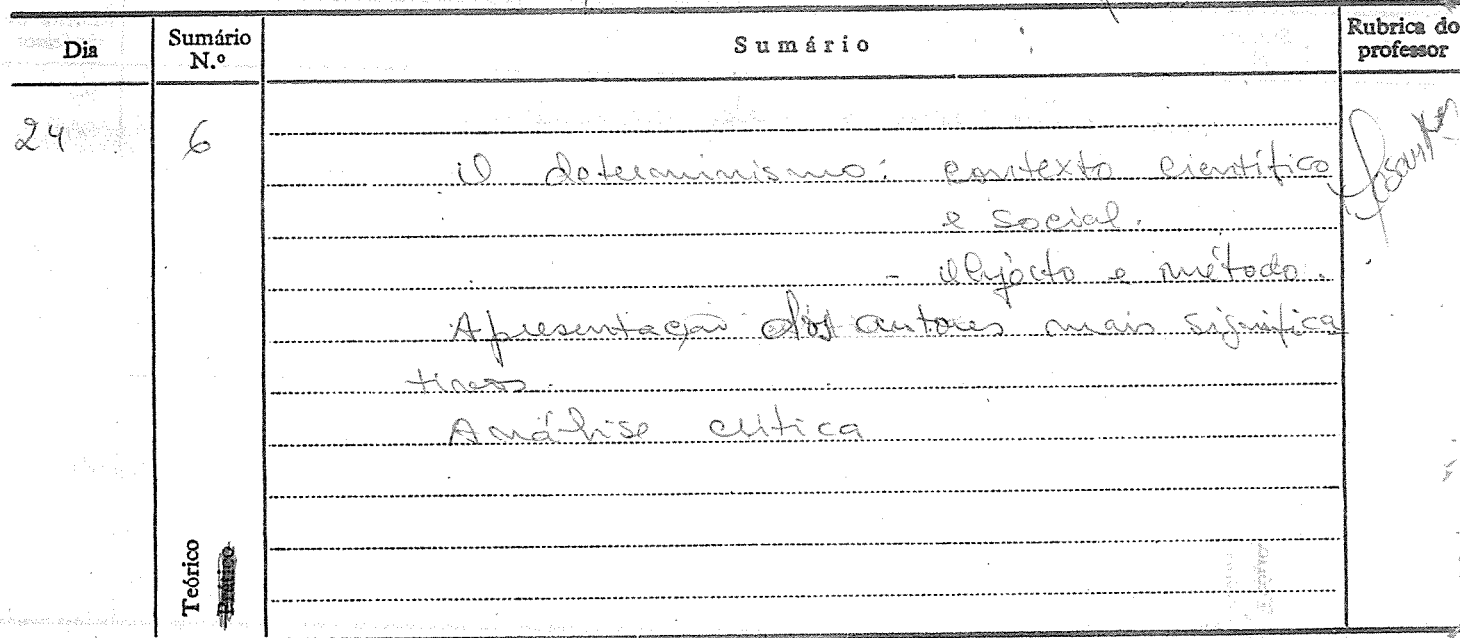 Dia
Sumário N.º
Sumário
Rubrica do professor
24
6
O determinismo: contexto científico
e social.
- Objecto e método.
Apresentação dos autores mais significa
tivos.
Análise crítica
Teórico
Prático